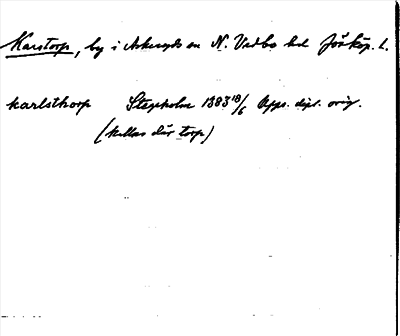 Karstorp, by i Askeryds sn N. Vedbo hd Jönköp. L.
karlsthorp Stegeholm 1383 18/6 Apps. dipl. orig.
(kallas där torp)